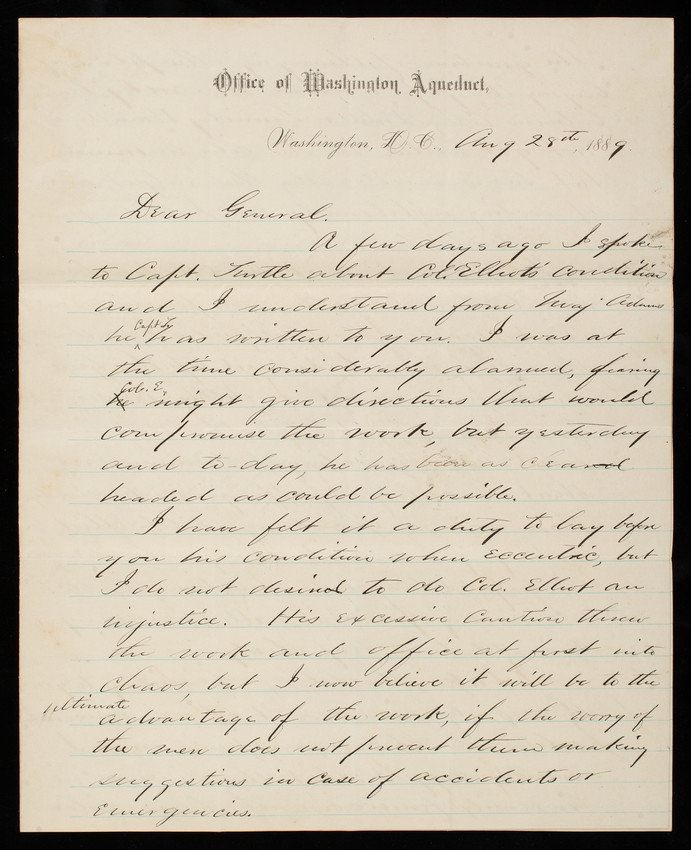 Office of Washington Aqueduct,
Washington, D.C., Aug 28th, 1889.
Dear General.
A few days ago I spoke
to Capt. Turtle about Col. Elliot's condition
and I understand from Maj. Adams
he Capt Ty has written to you. I was at
the time considerably alarmed, fearing
Col. E. might give directions that would
compromise the work, but yesterday
and to-day, he has been as clear
headed as could be possible.
I have felt it a duty to lay before
you his condition when eccentric, but
I do not desire to do Col. Elliot an
injustice. His excessive caution threw
the work and office at first into
chaos, but I now believe it will be to the
ultimate advantage of the work, if the worry of
the men does not prevent them making
suggestions in case of accidents or
emergencies.